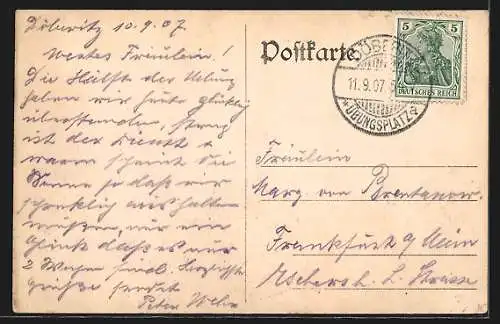 Döberitz 10.9.07.
Wertes Fräulein!
Die Hälfte der Übung
haben wir heute glücklich
überstanden, streng
ist der Dienst u.
warm scheint die
Sonne so daß wir
schrecklich aushalten
müssen, nur ein
Glück daß es nur
2 Wochen sind. Herzlichste
Grüße sendet
Peter
Postkarte
DÖBERITZ
11.9.07
*ÜBUNGSPLATZ*
5 5
DEUTSCHES REICH
Fräulein
Marg. von Brentano
Frankfurt a/Main
Eschersh. L. Strasse